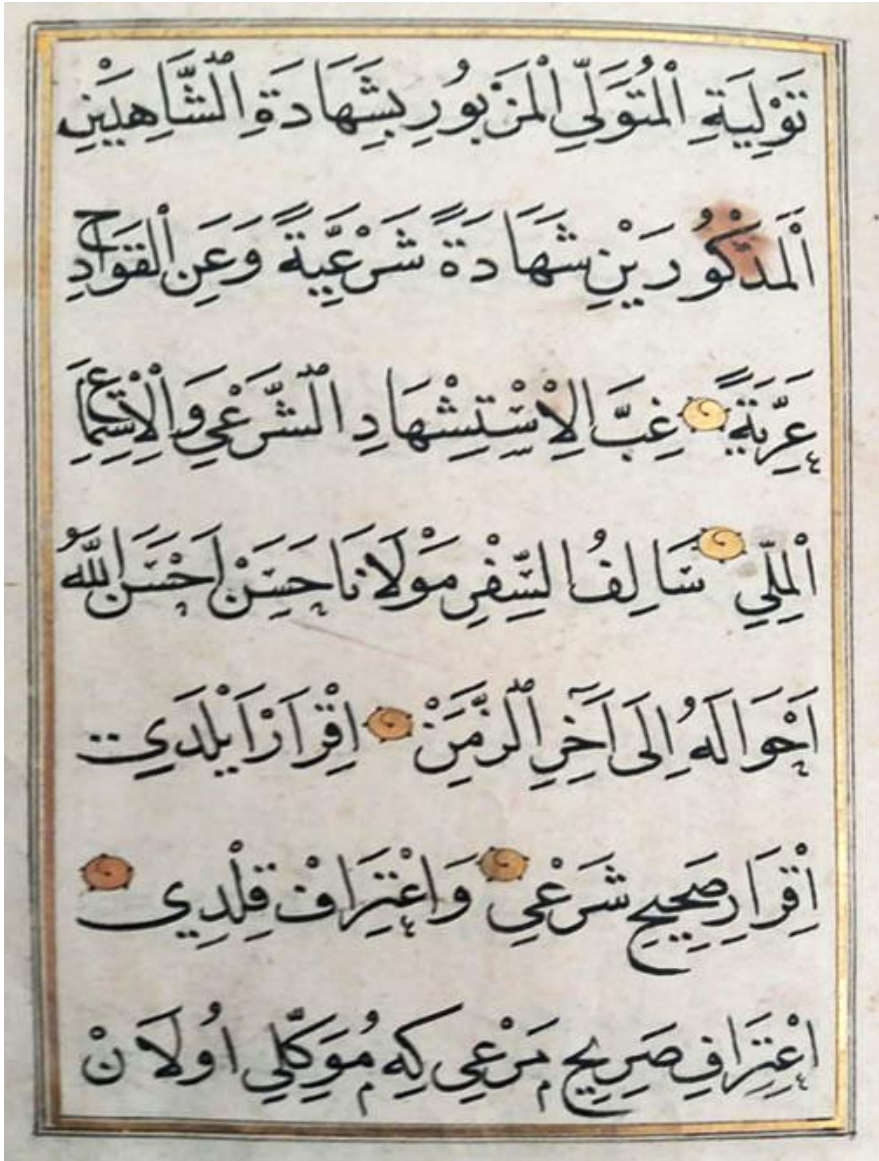 تَوْلِيَةِ ٱلْمُتَوَلِّي ٱلْمَزْبُورِ بِشَهَادَةِ ٱلشَّاهِدَيْنِ
اَلْمَذْكُورَيْنِ شَهَادَةً شَرْعِيَّةً وَعَنِ ٱلْقَوَادِحِ
عَرِيَّةً غِبَّ الِاْسْتِشْهَادِ ٱلشَّرْعِيِ وَالْاِسْتِمَاعِ
اَلْمِلِّي سَالِفُ السِّفْرِ مَوْلَانَا حَسَنْ اَحْسَنَ اللّٰهُ
اَحْوَالَهُ اِلَى آخِرِ ٱلزَّمَنْ اِقْرَارْ اَيْلَدِي
اِقْرَارِ صَحِيحِ شَرْعِي وَاعْتِرَافْ قِلْدِي
اِعْتِرَافِ صَرِيحِ مَرْعِي كِه مُوَكِّلِي اُولَانْ